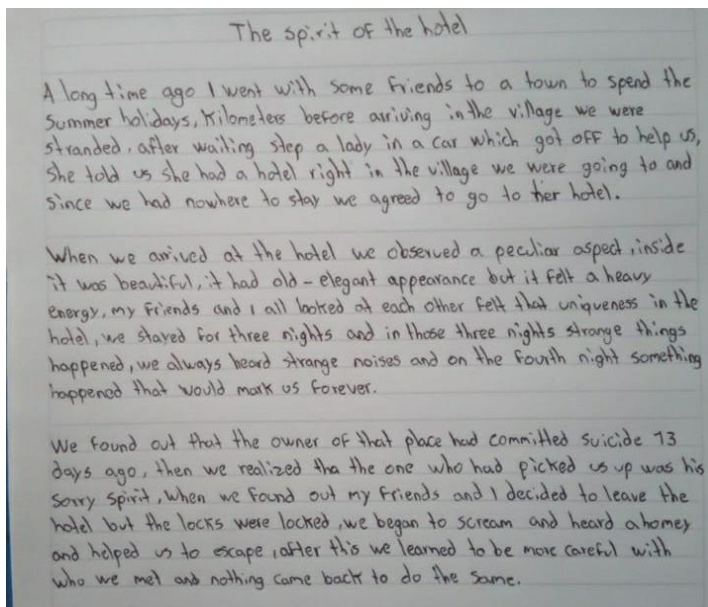 The spirit of the hotel
A long time ago I went with some friends to a town to spend the
summer holidays, kilometers before arriving in the village we were
stranded, after waiting step a lady in a car which got off to help us,
she told us she had a hotel right in the village we were going to and
since we had nowhere to stay we agreed to go to her hotel.
When we arrived at the hotel we observed a peculiar aspect, inside
it was beautiful, it had old - elegant appearance but it felt a heavy
energy, my friends and I all looked at each other felt that uniqueness in the
hotel, we stayed for three nights and in those three nights strange things
happened, we always heard strange noises and on the fourth night something
happened that would mark us forever.
We found out that the owner of that place had committed suicide 13
days ago, then we realized tha the one who had picked us up was his
sorry spirit, when we found out my friends and I decided to leave the
hotel but the locks were locked, we began to scream and heard a homey
and helped us to escape, after this we learned to be more careful with
who we met and nothing came back to do the same.